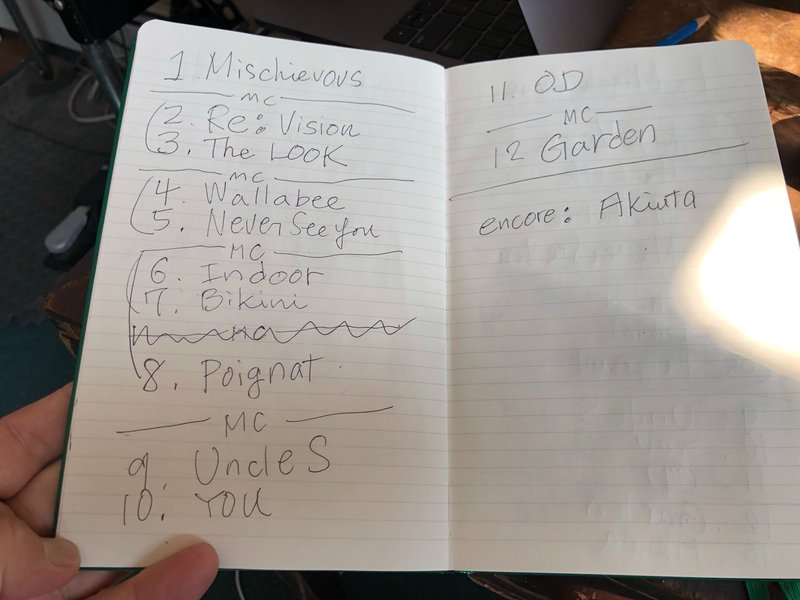 1 Mischievous
MC
2. Re: Vision
3. The LOOK
MC
4. Wallabee
5. Never See You
MC
6. Indoor
7. Bikini
8. Poignat
MC
9. Uncle S
10. YOU
11. OD
MC
12 Garden
encore: Akiuta